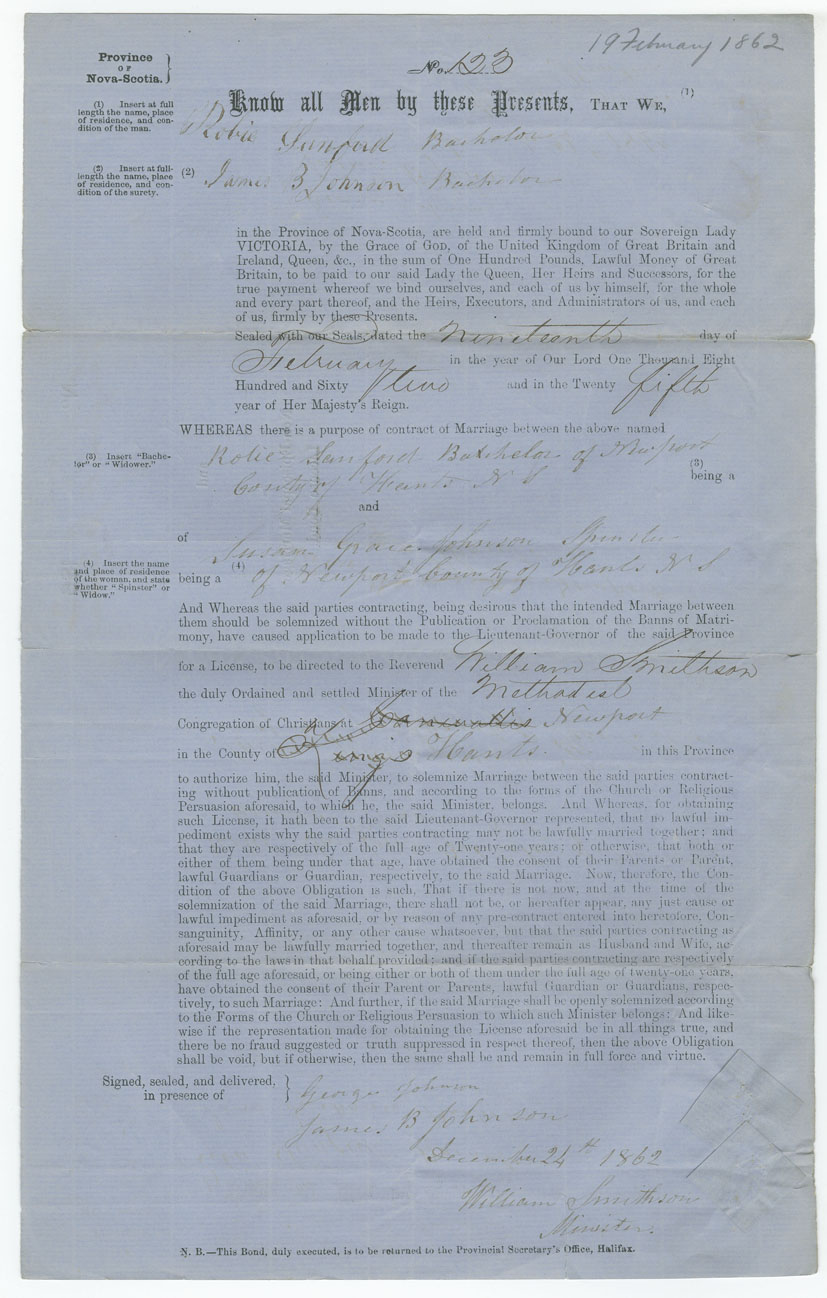 19 February 1862
Province
OF
Nova-Scotia.
No. 123
Know all Men by these Presents, THAT WE, (1)
(1) Insert at full
length the name, place
of residence, and con-
dition of the man.
Robie Sanford Bachelor
(2) Insert at full-
length the name, place
of residence, and con-
dition of the surety.
(2) James B Johnson Bachelor
in the Province of Nova-Scotia, are held and firmly bound to our Sovereign Lady
VICTORIA, by the Grace of GOD, of the United Kingdom of Great Britain and
Ireland, Queen, &c., in the sum of One Hundred Pounds, Lawful Money of Great
Britain, to be paid to our said Lady the Queen, Her Heirs and Successors, for the
true payment whereof we bind ourselves, and each of us by himself, for the whole
and every part thereof, and the Heirs, Executors, and Administrators of us, and each
of us, firmly by these Presents.
Sealed with our Seals, dated the Nineteenth day of
February in the year of Our Lord One Thousand Eight
Hundred and Sixty two and in the Twenty fifth
year of Her Majesty's Reign.
WHEREAS there is a purpose of contract of Marriage between the above named
(3) Insert "Bache-
lor" or "Widower."
Robie Sanford Batchelor of Newport
County of Hants N S (3) being a
and
of Susan Johnson Spinster
(4) Insert the name
and place of residence
of the woman, and state
whether "Spinster" or
"Widow."
being a (4) of Newport County of Hants N S
And Whereas the said parties contracting, being desirous that the intended Marriage between
them should be solemnized without the Publication or Proclamation of the Banns of Matri-
mony, have caused application to be made to the Lieutenant-Governor of the said Province
for a License, to be directed to the Reverend William Smithson
the duly Ordained and settled Minister of the Methodist
Congregation of Christians at Cornwallis Newport
in the County of Kings Hants. in this Province
to authorize him, the said Minister, to solemnize Marriage between the said parties contract-
ing without publication of Banns, and according to the forms of the Church or Religious
Persuasion aforesaid, to which he, the said Minister, belongs. And Whereas, for obtaining
such License, it hath been to the said Lieutenant-Governor represented, that no lawful im-
pediment exists why the said parties contracting may not be lawfully married together; and
that they are respectively of the full age of Twenty-one years; or otherwise, that both or
either of them being under that age, have obtained the consent of their Parents or Parent,
lawful Guardians or Guardian, respectively, to the said Marriage. Now, therefore, the Con-
dition of the above Obligation is such, That if there is not now, and at the time of the
solemnization of the said Marriage, there shall not be, or hereafter appear, any just cause or
lawful impediment as aforesaid, or by reason of any pre-contract entered into heretofore, Con-
sanguinity, Affinity, or any other cause whatsoever, but that the said parties contracting as
aforesaid may be lawfully married together, and thereafter remain as Husband and Wife, ac-
cording to the laws in that behalf provided; and if the said parties contracting are respectively
of the full age aforesaid, or being either or both of them under the full age of twenty-one years,
have obtained the consent of their Parent or Parents, lawful Guardian or Guardians, respec-
tively, to such Marriage: And further, if the said Marriage shall be openly solemnized according
to the Forms of the Church or Religious Persuasion to which such Minister belongs: And like-
wise if the representation made for obtaining the License aforesaid be in all things true, and
there be no fraud suggested or truth suppressed in respect thereof, then the above Obligation
shall be void, but if otherwise, then the same shall be and remain in full force and virtue.
Signed, sealed, and delivered,
in presence of
George Johnson
James B Johnson
December 24th 1862
William Smithson
Minister.
N. B.—This Bond, duly executed, is to be returned to the Provincial Secretary's Office, Halifax.